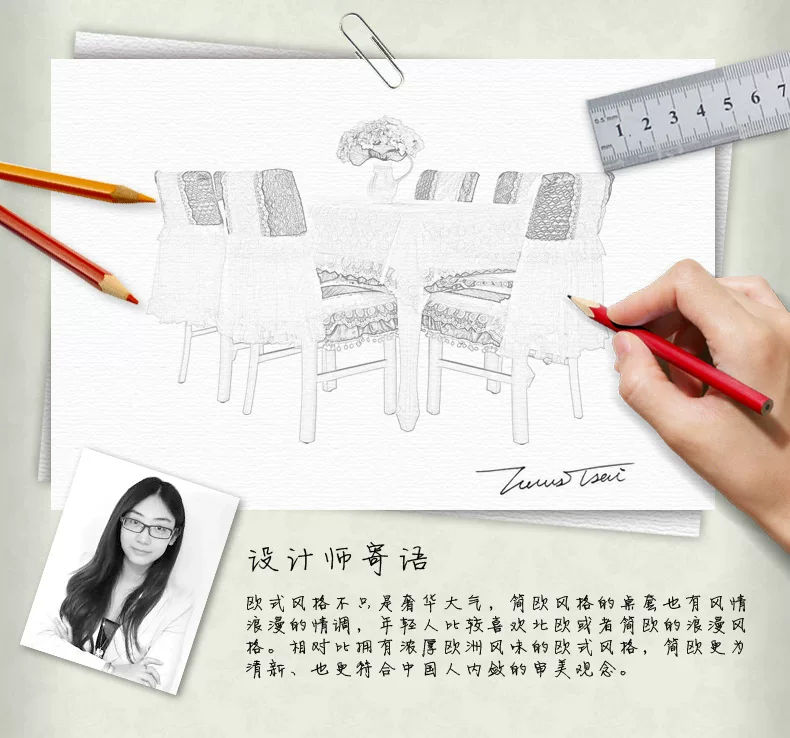 0.5mm 1 2 3 4 5 6 7
mm
设计师寄语
欧式风格不只是奢华大气，简欧风格的桌套也有风情
浪漫的情调，年轻人比较喜欢北欧或者简欧的浪漫风
格。相对比拥有浓厚欧洲风味的欧式风格，简欧更为
清新、也更符合中国人内敛的审美观念。